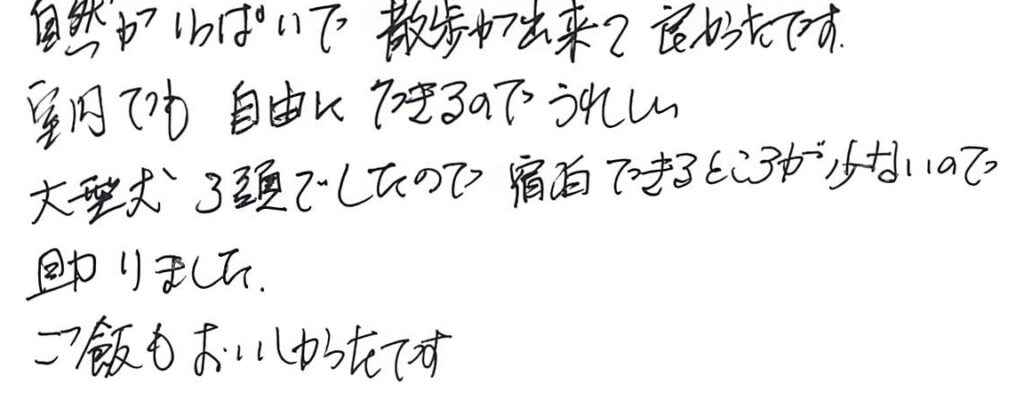 自然がいっぱいで 散歩が出来て 良かったです.
室内でも 自由に できるので うれしい
大型犬 3頭でしたので 宿泊できるところが少ないので
助かりました.
ご飯も おいしかったです